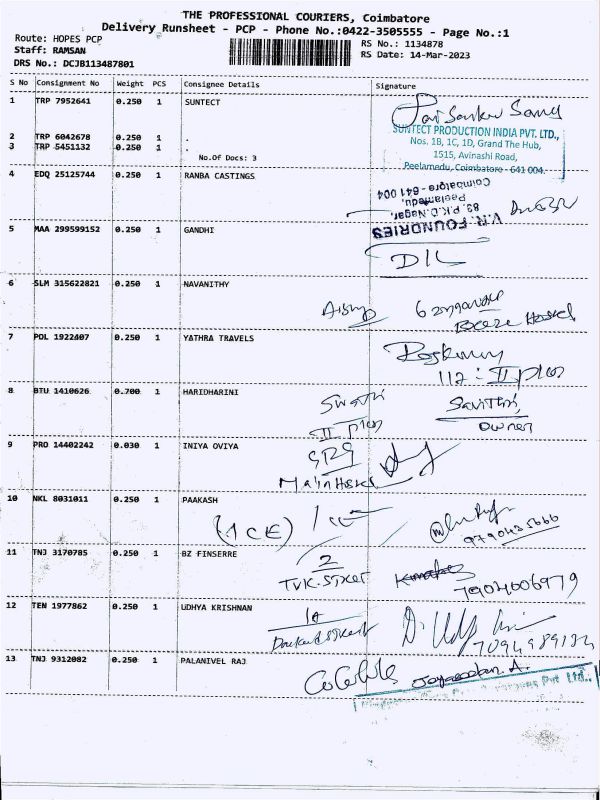 THE PROFESSIONAL COURIERS, Coimbatore
Delivery Runsheet - PCP - Phone No.:0422-3505555 - Page No.:1
Route: HOPES PCP
RS No.: 1134878
Staff: RAMSAN
RS Date: 14-Mar-2023
DRS No.: DCJB113487801
S No Consignment No Weight PCS Consignee Details Signature
1 TRP 7952641 0.250 1 SUNTECT
SUNTECT PRODUCTION INDIA PVT. LTD.,
Nos. 1B, 1C, 1D, Grand The Hub,
1515, Avinashi Road,
Peelamedu, Coimbatore - 641 004.
2 TRP 6042678 0.250 1 .
3 TRP 5451132 0.250 1 .
No.Of Docs: 3
4 EDQ 25125744 0.250 1 RANBA CASTINGS
V.R. FOUNDRIES
89, P.K.D. Nagar,
Peelamedu,
Coimbatore - 641 004
5 MAA 299599152 0.250 1 GANDHI
DIL
6 SLM 315622821 0.250 1 NAVANITHY
Hostel
7 POL 1922407 0.250 1 YATHRA TRAVELS
112 : II floor
8 BTU 1410626 0.700 1 HARIDHARINI
Swathi Savithri
II floor owner
9 PRO 14402242 0.030 1 INIYA OVIYA
Main Hostel
10 NKL 8031011 0.250 1 PAAKASH
(1CE)
11 TNJ 3170785 0.250 1 BZ FINSERRE
2
TVK. Street 7904006979
12 TEN 1977862 0.250 1 UDHYA KRISHNAN
1A
13 TNJ 9312082 0.250 1 PALANIVEL RAJ
Pvt Ltd.,